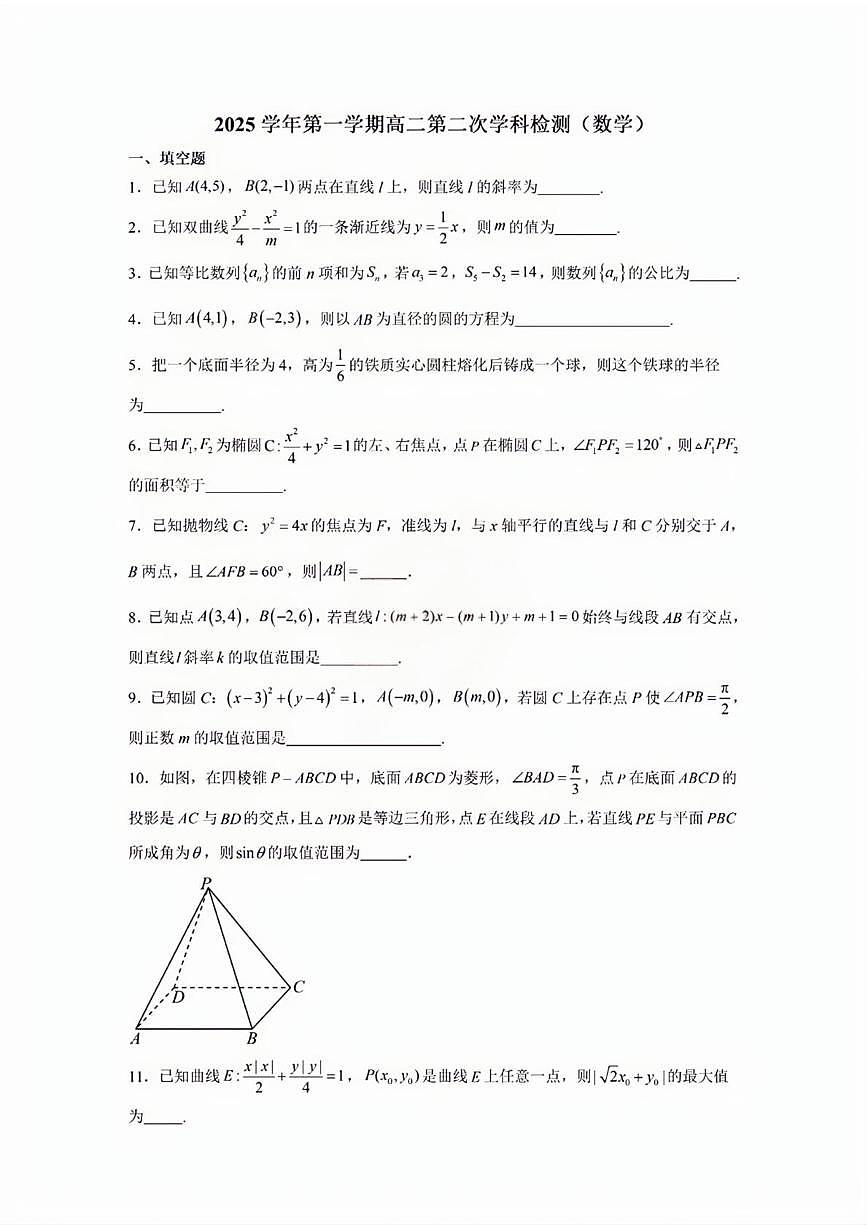 2025 学年第一学期高二第二次学科检测（数学）
一、填空题
1．已知 A(4,5)，B(2,−1) 两点在直线 l 上，则直线 l 的斜率为________.
2．已知双曲线 y²/4 − x²/m = 1 的一条渐近线为 y = 1/2 x，则 m 的值为________.
3．已知等比数列{aₙ}的前 n 项和为 Sₙ，若 a₃ = 2，S₅ − S₂ = 14，则数列{aₙ}的公比为______.
4．已知 A(4,1)，B(−2,3)，则以 AB 为直径的圆的方程为____________________.
5．把一个底面半径为 4，高为 1/6 的铁质实心圆柱熔化后铸成一个球，则这个铁球的半径
为__________.
6．已知 F₁,F₂ 为椭圆 C: x²/4 + y² = 1 的左、右焦点，点 P 在椭圆 C 上，∠F₁PF₂ = 120°，则 △F₁PF₂
的面积等于__________.
7．已知抛物线 C：y² = 4x 的焦点为 F，准线为 l，与 x 轴平行的直线与 l 和 C 分别交于 A，
B 两点，且∠AFB = 60°，则|AB| = ______．
8．已知点 A(3,4)，B(−2,6)，若直线 l : (m + 2)x − (m + 1)y + m + 1 = 0 始终与线段 AB 有交点，
则直线 l 斜率 k 的取值范围是__________.
9．已知圆 C：(x−3)² + (y−4)² = 1，A(−m,0)，B(m,0)，若圆 C 上存在点 P 使∠APB = π/2，
则正数 m 的取值范围是____________________.
10．如图，在四棱锥 P − ABCD 中，底面 ABCD 为菱形，∠BAD = π/3，点 P 在底面 ABCD 的
投影是 AC 与 BD 的交点，且△ PDB 是等边三角形，点 E 在线段 AD 上，若直线 PE 与平面 PBC
所成角为θ，则 sinθ 的取值范围为______．
P
D
C
A
B
11．已知曲线 E : x|x|/2 + y|y|/4 = 1，P(x₀,y₀) 是曲线 E 上任意一点，则|√2x₀ + y₀|的最大值
为_____.